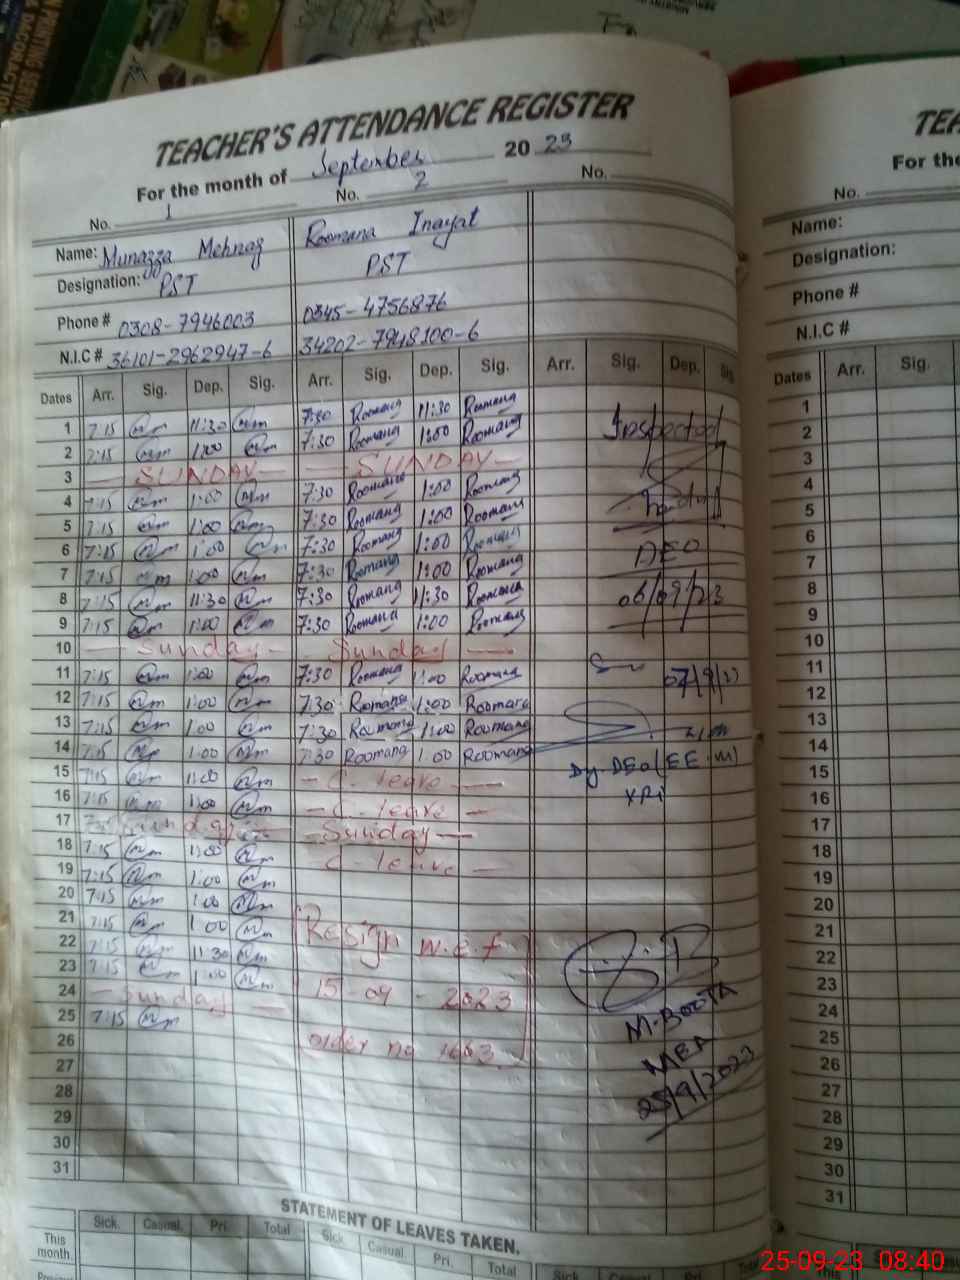 TEACHER'S ATTENDANCE REGISTER
For the month of September 2023
No. 1 No. 2 No.
Name: Munazza Mehnaz Roomana Inayat
Designation: PST PST
Phone # 0308-7946003 0345-4756876
N.I.C # 36101-2962947-6 34202-7948100-6
Dates Arr. Sig. Dep. Sig. Arr. Sig. Dep. Sig. Arr. Sig. Dep. Sig
1 7:15 11:30 7:30 Roomana 11:30 Roomana
2 7:15 1:00 7:30 Roomana 1:00 Roomana Inspected
3 SUNDAY SUNDAY
4 7:15 1:00 7:30 Roomana 1:00 Roomana
5 7:15 1:00 7:30 Roomana 1:00 Roomana
6 7:15 1:00 7:30 Roomana 1:00 Roomana DEO
7 7:15 1:00 7:30 Roomana 1:00 Roomana
8 7:15 11:30 7:30 Roomana 11:30 Roomana 06/09/23
9 7:15 1:00 7:30 Roomana 1:00 Roomana
10 Sunday Sunday
11 7:15 1:00 7:30 Roomana 1:00 Roomana 07/9/23
12 7:15 1:00 7:30 Roomana 1:00 Roomana
13 7:15 1:00 7:30 Roomana 1:00 Roomana
14 7:15 1:00 7:30 Roomana 1:00 Roomana
15 7:15 1:00 C. leave Dy. DEO (EE.M)
16 7:15 1:00 C. leave
17 Sunday Sunday
18 7:15 1:00 C. leave
19 7:15 1:00
20 7:15 1:00
21 7:15 1:00 Resign w.e.f
22 7:15 11:30
23 7:15 1:00 15-09-2023
24 Sunday M.BOOTA
25 7:15
26 order no 1663 MEA
27 25/9/2023
28
29
30
31
STATEMENT OF LEAVES TAKEN.
Sick. Casual. Pri. Total Sick. Casual. Pri. Total Sick.
This month.
TEA
For the
No.
Name:
Designation:
Phone #
N.I.C #
Dates Arr. Sig.
1
2
3
4
5
6
7
8
9
10
11
12
13
14
15
16
17
18
19
20
21
22
23
24
25
26
27
28
29
30
31
25-09-23 08:40